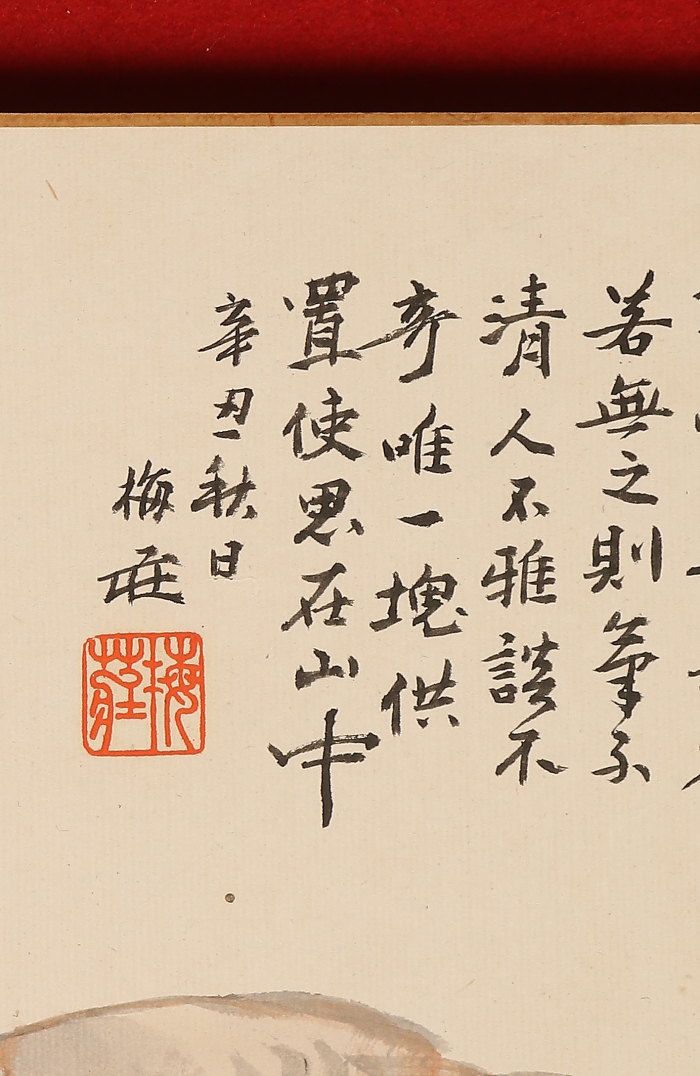 若無之則筆不
清人不雅談不
奇唯一塊供
置使思在山中
辛丑秋日
梅莊
梅莊